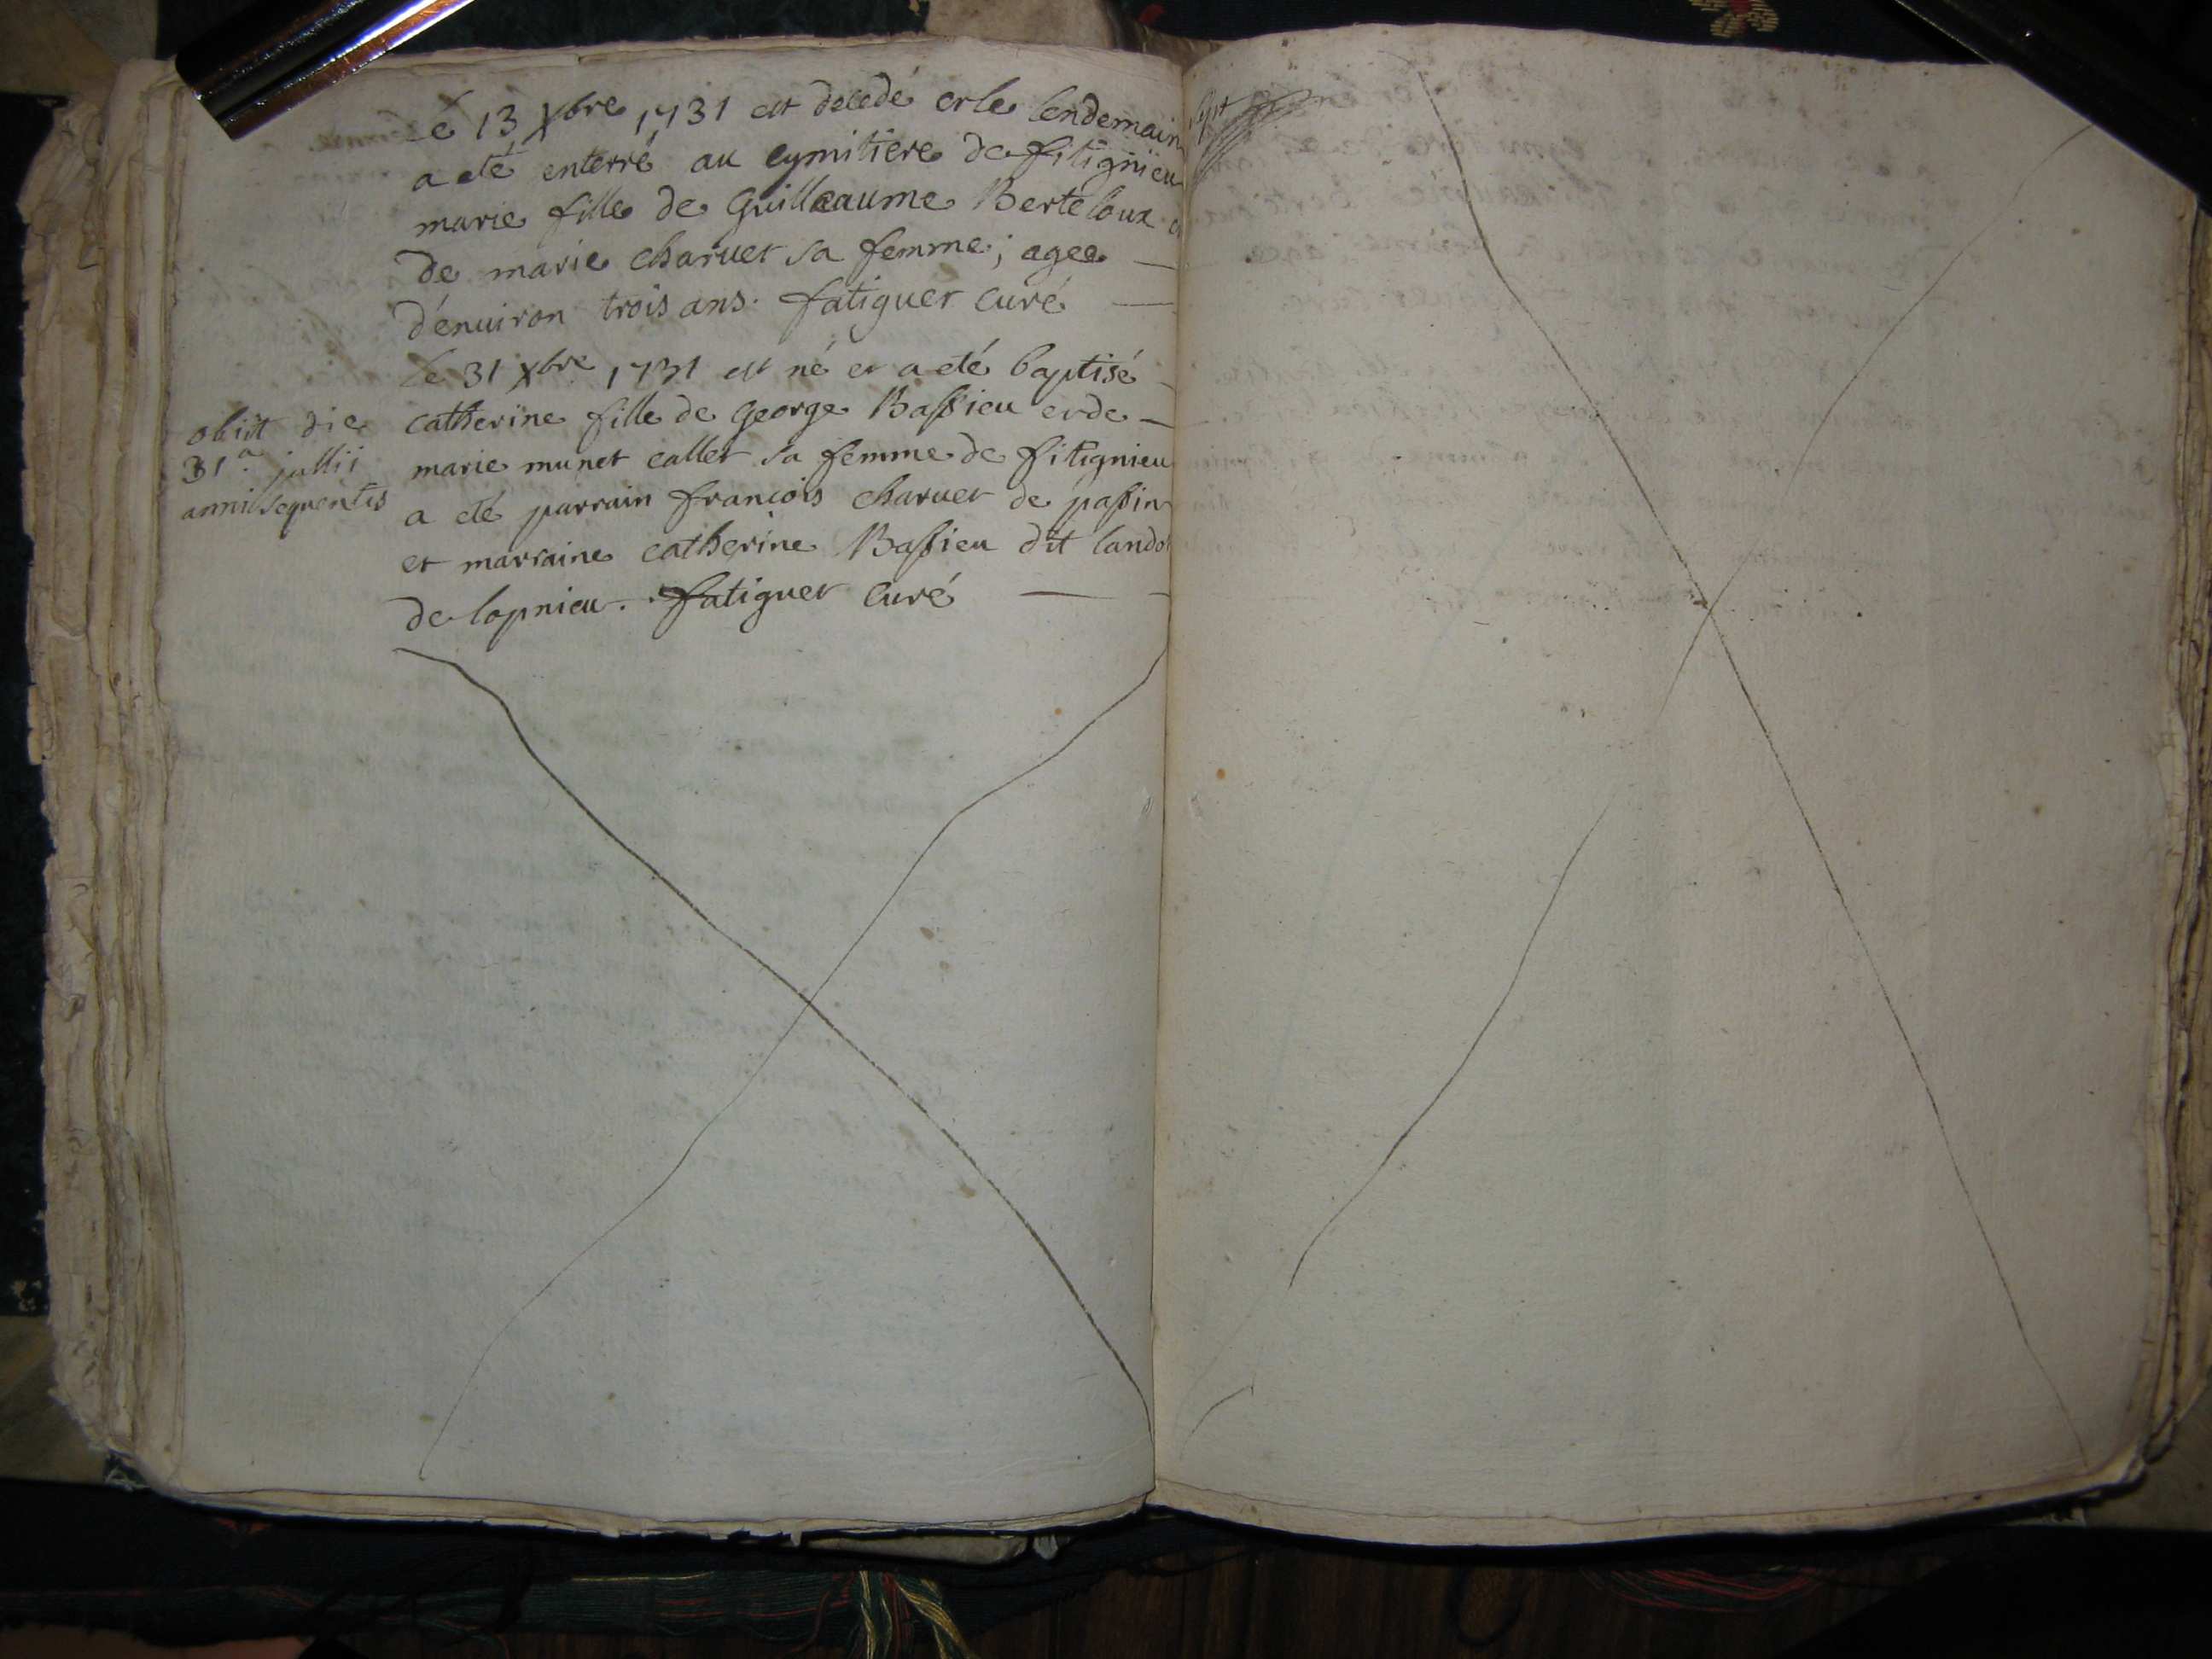 Le 13 Xbre 1731 est decedé et le lendemain
a eté enterré au cymitiere de fitignieu
marie fille de Guilleaume Berteloux et
de marie charvet sa femme; agee
d'enuiron trois ans. fatiguet curé
Le 31 xbre 1731 est né et a eté baptisé
catherine fille de George Bassieu et de
marie munet callet sa femme de fitignieu
a eté parrain francois charuet de passin
et marraine catherine Bassieu dit landot
de lopnieu. fatiguet curé
obiit die
31a. jullii
anni sequentis